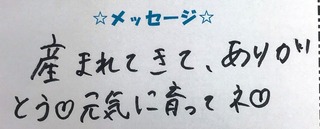 ☆メッセージ☆
産まれてきて、ありが
とう♡元気に育ってネ♡